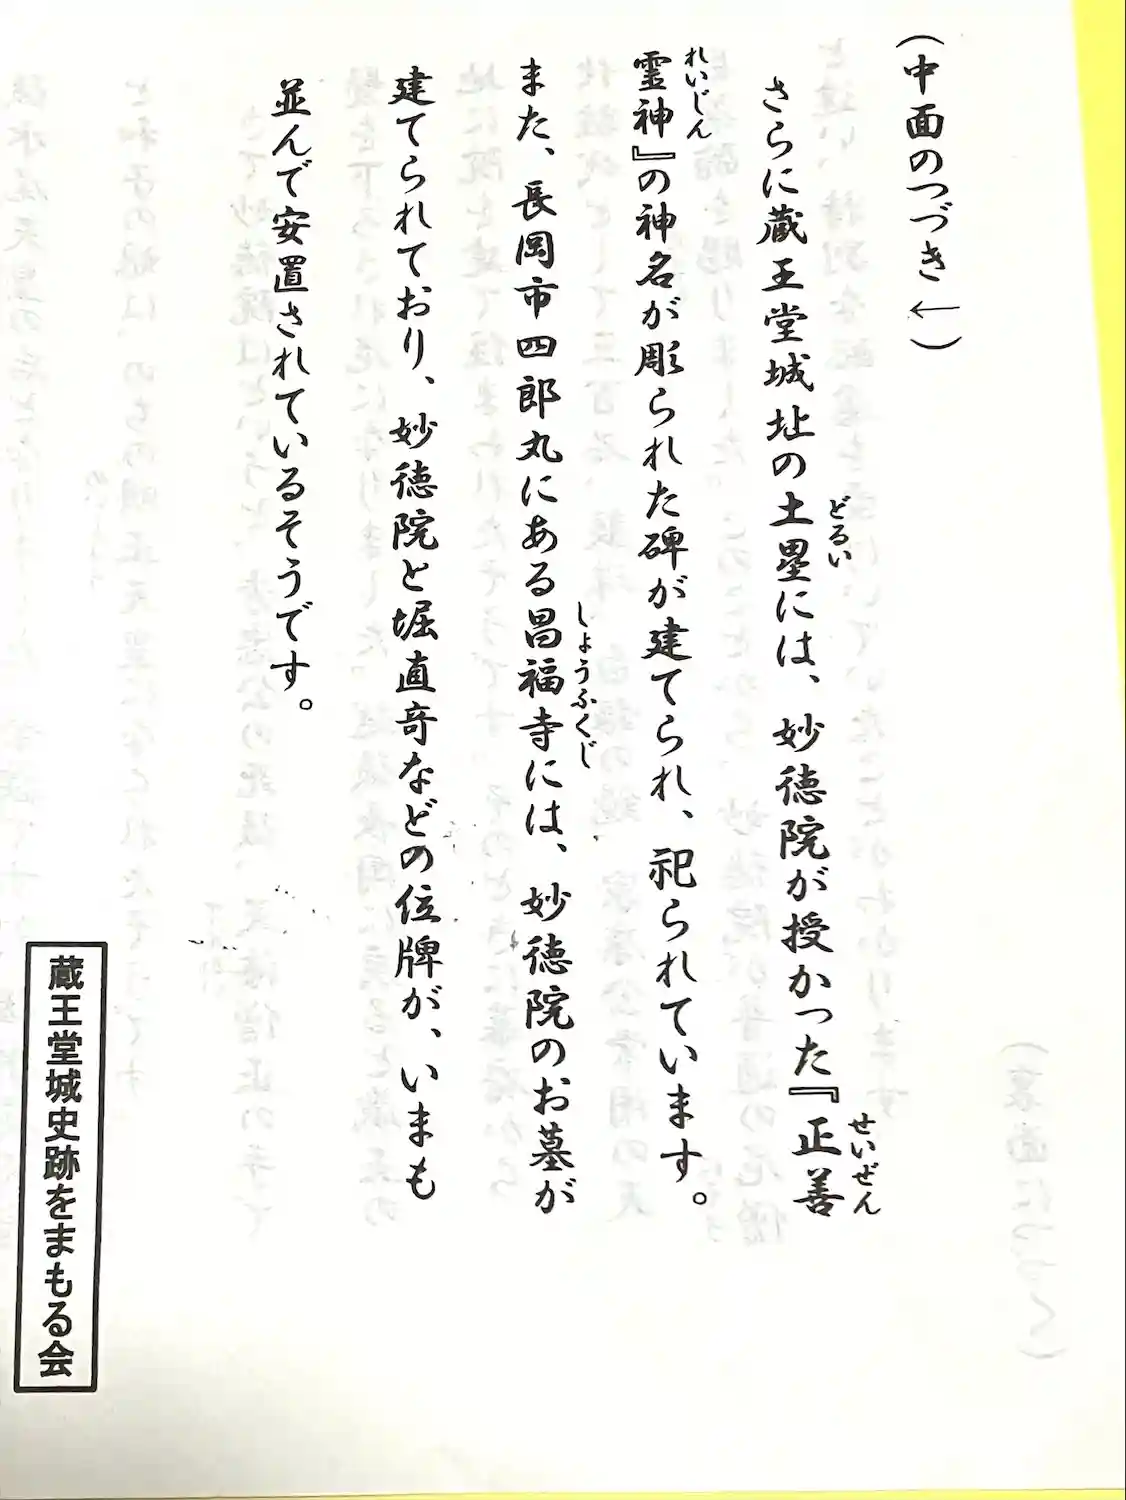 (中面のつづき←)
さらに蔵王堂城址の土塁には、妙徳院が授かった『正善
どるい
せいぜん
霊神』の神名が彫られた碑が建てられ、祀られています。
れいじん
また、長岡市四郎丸にある昌福寺には、妙徳院のお墓が
しょうふくじ
建てられており、妙徳院と堀直竒などの位牌が、いまも
並んで安置されているそうです。
蔵王堂城史跡をまもる会